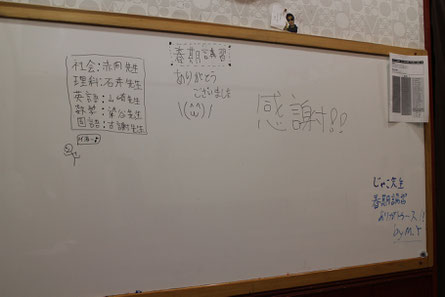 社会:赤岡先生
理科:石井先生
英語:山崎先生
数学:染谷先生
国語:吉謝先生
春期講習
ありがとう
ございました
\(^^)/
感謝!!
じゃこ先生
春期講習
ありがとうース!!
by M.Y